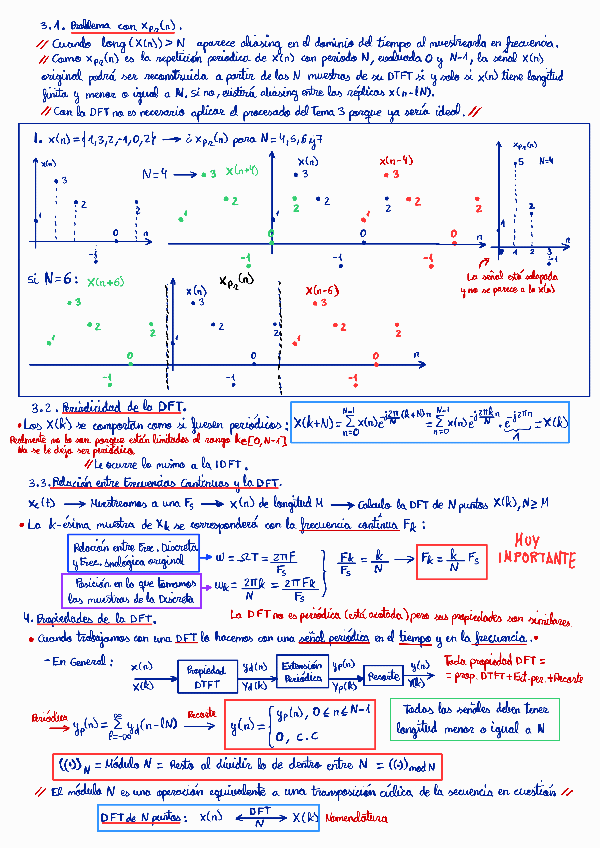 3.1. Problema con xp2(n).
// Cuando long(X(n)) > N aparece aliasing en el dominio del tiempo al muestrearla en frecuencia.
// Como xp2(n) es la repetición periodica de x(n) con periodo N, evaluada 0 y N-1, la señal x(n)
original podrá ser reconstruida a partir de las N muestras de su DTFT si y solo si x(n) tiene longitud
finita y menor o igual a N. Si no, existirá aliasing entre las réplicas x(n-lN).
// Con la DFT no es necesario aplicar el procesado del Tema 3 porque ya sería ideal. //
1. x(n)={1,3,2,-1,0,2} → ¿xp2(n) para N=4,5,6y7
x(n) 1 3 2 -1 0 2 n
N=4 → 3 x(n+4) x(n) 3 x(n-4) 3
1 2 2 1 2 2 1 2 2 0 -1 0 -1 0 -1 n
xp2(n) 5 N=4 1 2 -1 0 1 2 3 n
La señal está solapada
y no se parece a la x(n)
si N=6: x(n+6) xp2(n)
x(n) x(n-6)
3 3 3
1 2 2 1 2 2 1 2 2
0 0 0 n
-1 -1 -1
3.2. Periodicidad de la DFT.
• Los X(k) se comportan como si fuesen periódicos: X(k+N)=∑_{n=0}^{N-1} x(n)e^{-j2π/N (k+N)n} = ∑_{n=0}^{N-1} x(n)e^{-j2πk/N n} · e^{-j2πn} = X(k)
1
Realmente no lo son porque están limitados al rango k∈[0,N-1]
No se le deja ser periódica
// Le ocurre lo mismo a la IDFT.
3.3. Relación entre frecuencias Continuas y la DFT.
xc(t) → Muestreamos a una Fs → x(n) de longitud M → Calculo la DFT de N puntos X(k), N≥M
• La k-ésima muestra de Xk se corresponderá con la frecuencia continua Fk:
Relación entre Frec. Discreta
y Frec. Analógica original → ω = ΩT = 2πF/Fs
Posición en la que tomamos
las muestras de la Discreta → ωk = 2πk/N = 2πFk/Fs
Fk/Fs = k/N → Fk = k/N · Fs
MUY
IMPORTANTE
4. Propiedades de la DFT.
La DFT no es periódica (está acotada) pero sus propiedades son similares.
• Cuando trabajamos con una DFT lo hacemos con una señal periódica en el tiempo y en la frecuencia.•
- En General: x(n) X(k) → Propiedad DTFT → yd(n) Yd(k) → Extensión Periódica → yp(n) Yp(k) → Recorte → y(n) Y(k)
Toda propiedad DFT =
= prop. DTFT+Ext.per.+Recorte
Periódica → yp(n)=∑_{l=-∞}^{∞} yd(n-lN) Recorte → y(n)={ yp(n), 0≤n≤N-1
0, c.c
Todas las señales deben tener
longitud menor o igual a N
((·))N = Módulo N = Resto al dividir lo de dentro entre N = ((·))mod N
// El módulo N es una operación equivalente a una transposición cíclica de la secuencia en cuestión //
DFT de N puntos: x(n) ⟷ DFT N X(k) Nomenclatura